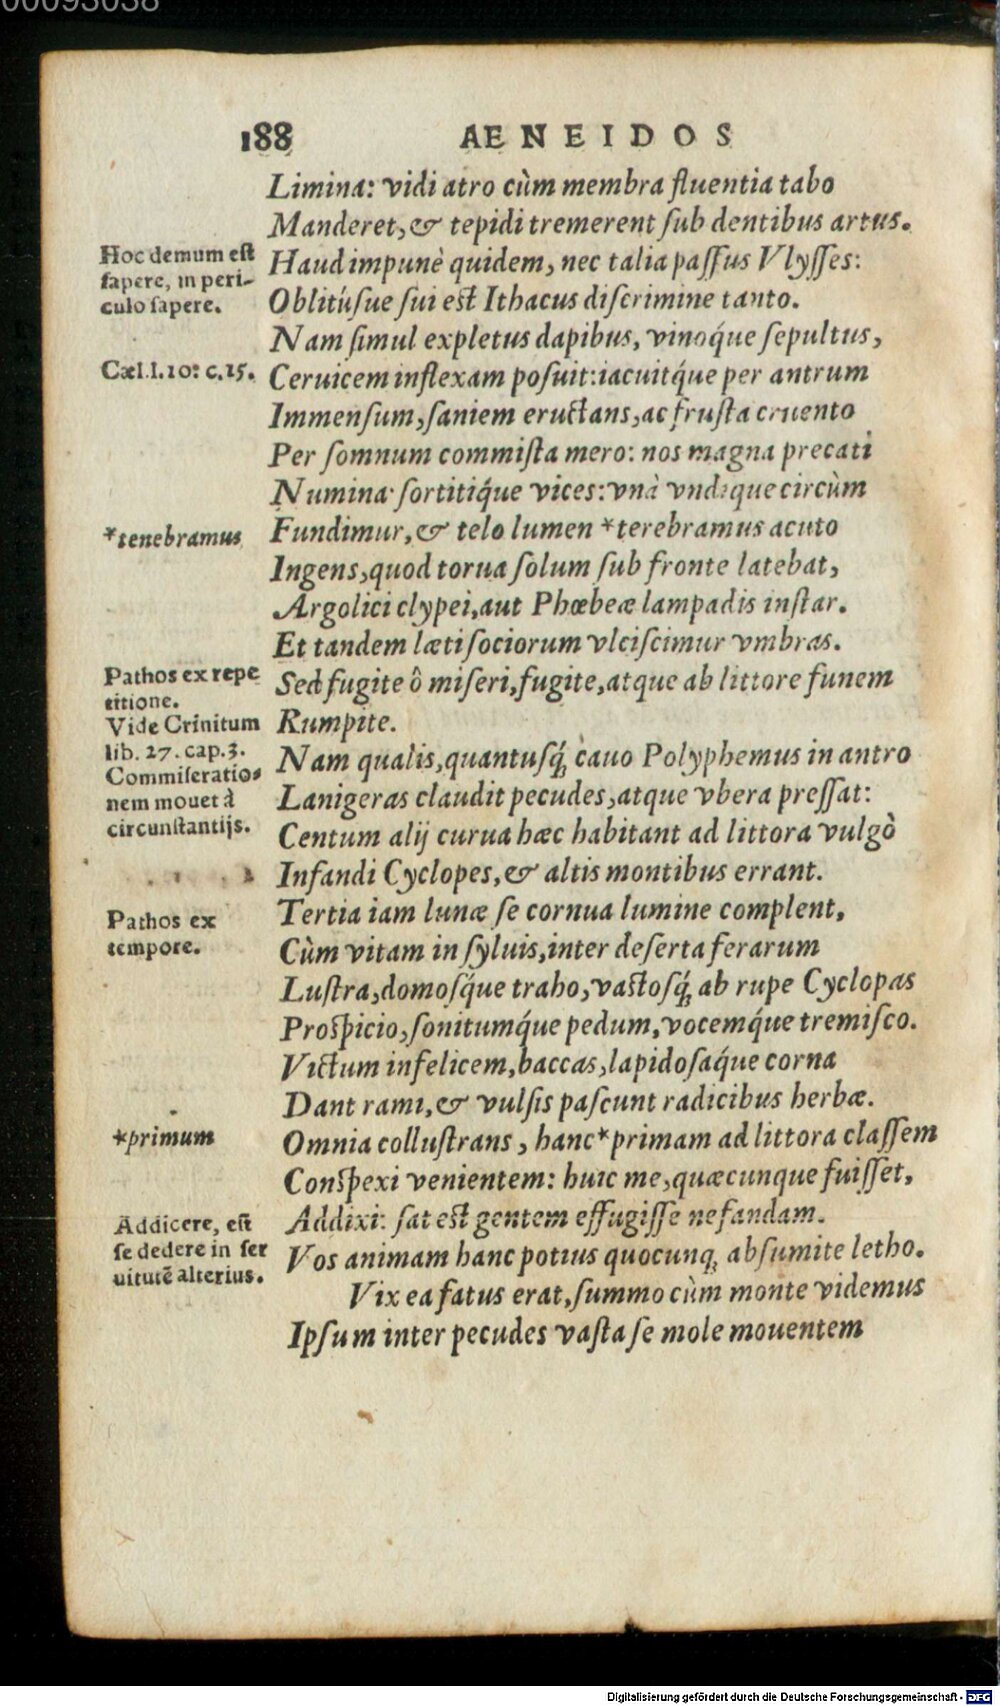 00093038
188 AENEIDOS
Limina: vidi atro cùm membra fluentia tabo
Manderet, & tepidi tremerent ſub dentibus artus.
Hoc demum eſt
ſapere, in peri-
culo ſapere.
Haud impunè quidem, nec talia paſſus Vlyſſes:
Oblitúſue ſui eſt Ithacus diſcrimine tanto.
Nam ſimul expletus dapibus, vinoq́ue ſepultus,
Cæl.l.10: c.15.
Ceruicem inflexam poſuit: iacuitq́ue per antrum
Immenſum, ſaniem eructans, ac fruſta cruento
Per ſomnum commiſta mero: nos magna precati
Numina: ſortitiq́ue vices: vnà vndique circùm
*tenebramus
Fundimur, & telo lumen *terebramus acuto
Ingens, quod torua ſolum ſub fronte latebat,
Argolici clypei, aut Phœbeæ lampadis inſtar.
Et tandem læti ſociorum vlciſcimur vmbras.
Pathos ex repe
titione.
Vide Crinitum
lib. 27. cap. 3.
Commiſeratio-
nem mouet à
circunſtantijs.
Sed fugite ô miſeri, fugite, atque ab littore funem
Rumpite.
Nam qualis, quantuſq́; cauo Polyphemus in antro
Lanigeras claudit pecudes, atque vbera preſſat:
Centum alij curua hæc habitant ad littora vulgò
Infandi Cyclopes, & altis montibus errant.
Pathos ex
tempore.
Tertia iam lunæ ſe cornua lumine complent,
Cùm vitam in ſyluis, inter deſerta ferarum
Luſtra, domoſq́ue traho, vaſtoſq́; ab rupe Cyclopas
Proſpicio, ſonitumq́ue pedum, vocemq́ue tremiſco.
Victum infelicem, baccas, lapidoſaq́ue corna
Dant rami, & vulſis paſcunt radicibus herbæ.
*primum
Omnia colluſtrans, hanc *primam ad littora claſſem
Conſpexi venientem: huic me, quæcunque fuiſſet,
Addicere, eſt
ſe dedere in ſer
uitutē alterius.
Addixi: ſat eſt gentem effugiſſe nefandam.
Vos animam hanc potius quocunq; abſumite letho.
Vix ea fatus erat, ſummo cùm monte videmus
Ipſum inter pecudes vaſta ſe mole mouentem
Digitalisierung gefördert durch die Deutsche Forschungsgemeinschaft - DFG